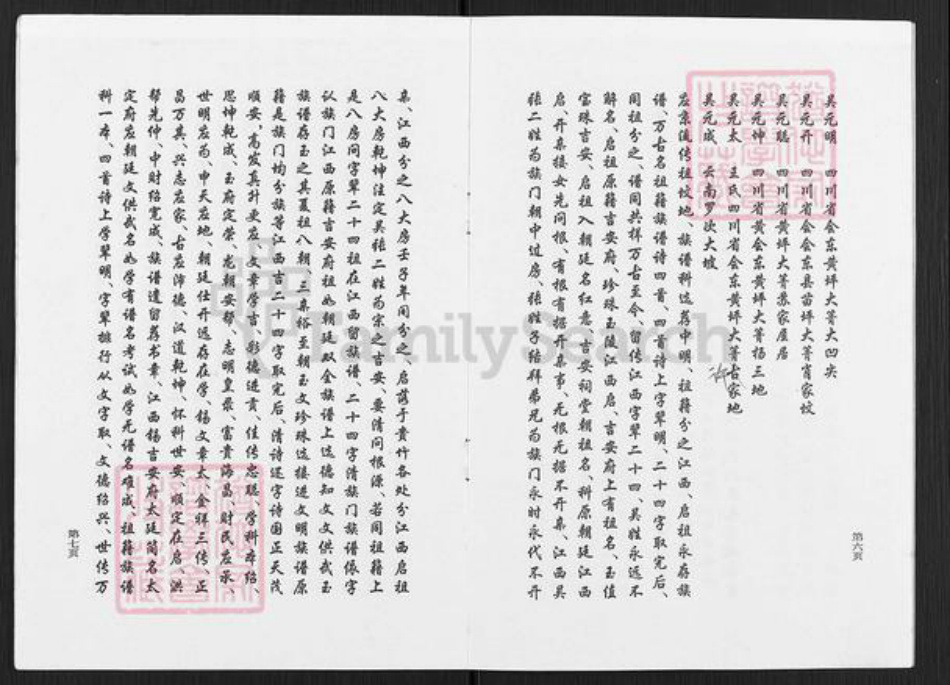 吴元明 四川省会东黄坪大箐大凹尖
吴元升 四川省会东县苗大箐肖家坟
吴元聪 四川省黄坪大箐苏家屋居
吴元坤 四川省黄会东黄坪大箐杨三地
吴元太 王氏四川省会东黄坪大箐古家地
吴元成 云南罗次大坡
应亲流传祖坟地、族谱科迄荐中明、祖籍分之江西、启祖永存族
谱、万古名祖籍族谱诗四首、四首诗上字辈明、二十四字取完后、
同祖分之、谱同共样万古至今、留传江西字辈二十四、吴姓永远不
解名、启祖原籍吉安府、珍珠玉陵江西启、吉安府上有祖名、玉值
宝珠吉安、启祖入朝廷名红意、吉安祠堂朝祖名、科原朝廷江西
启、开亲接女先问根、有根有据开亲事、无根无据不开亲、江西吴
张二姓为族门朝中过房、张姓子结拜弟兄为族门永时永代不开
第六页
亲、江西分之八大房壬子年间分之、启荡于贵竹各处分江西启祖
八大房乾坤注定吴张二姓为宗之吉安、要清问根源、若同祖籍上
是八房问字辈二十四祖在江西留族谱、二十四字清族门族谱依字
认族门江西原籍吉安府祖如朝廷双全族谱上迄德知文文供武玉
族谱存玉之其夏祖八朝、三亲裕至朝玉文珍珠迄接进文明族谱原
籍是族门均分族等江西吉二十四字取完后、清诗还字诗国正天茂
顺安、高发真升更应、文章学吉、彩德进贡、佳传忠聪、学科本绍、
思坤乾成、玉府定荣、龙朝安邦、志明皇景、富贵海昌、财民应承、
世明应为、申天应地、朝廷仕开远存在学、锡文章太、金祥三传、正
昌万其、兴志应家、古应沛德、汉道乾坤、怀科世安、顺定在启、洪
帮先仲、中财绍宽成、族谱遗留荐书章、江西锡吉安府太廷简名太
定府应朝廷文供武名如学有谱名考试如学无谱名难成、祖籍族谱
科一本、四首诗上学辈明、字辈排行从文字取、文德绍兴、世传万
第七页
FamilySearch